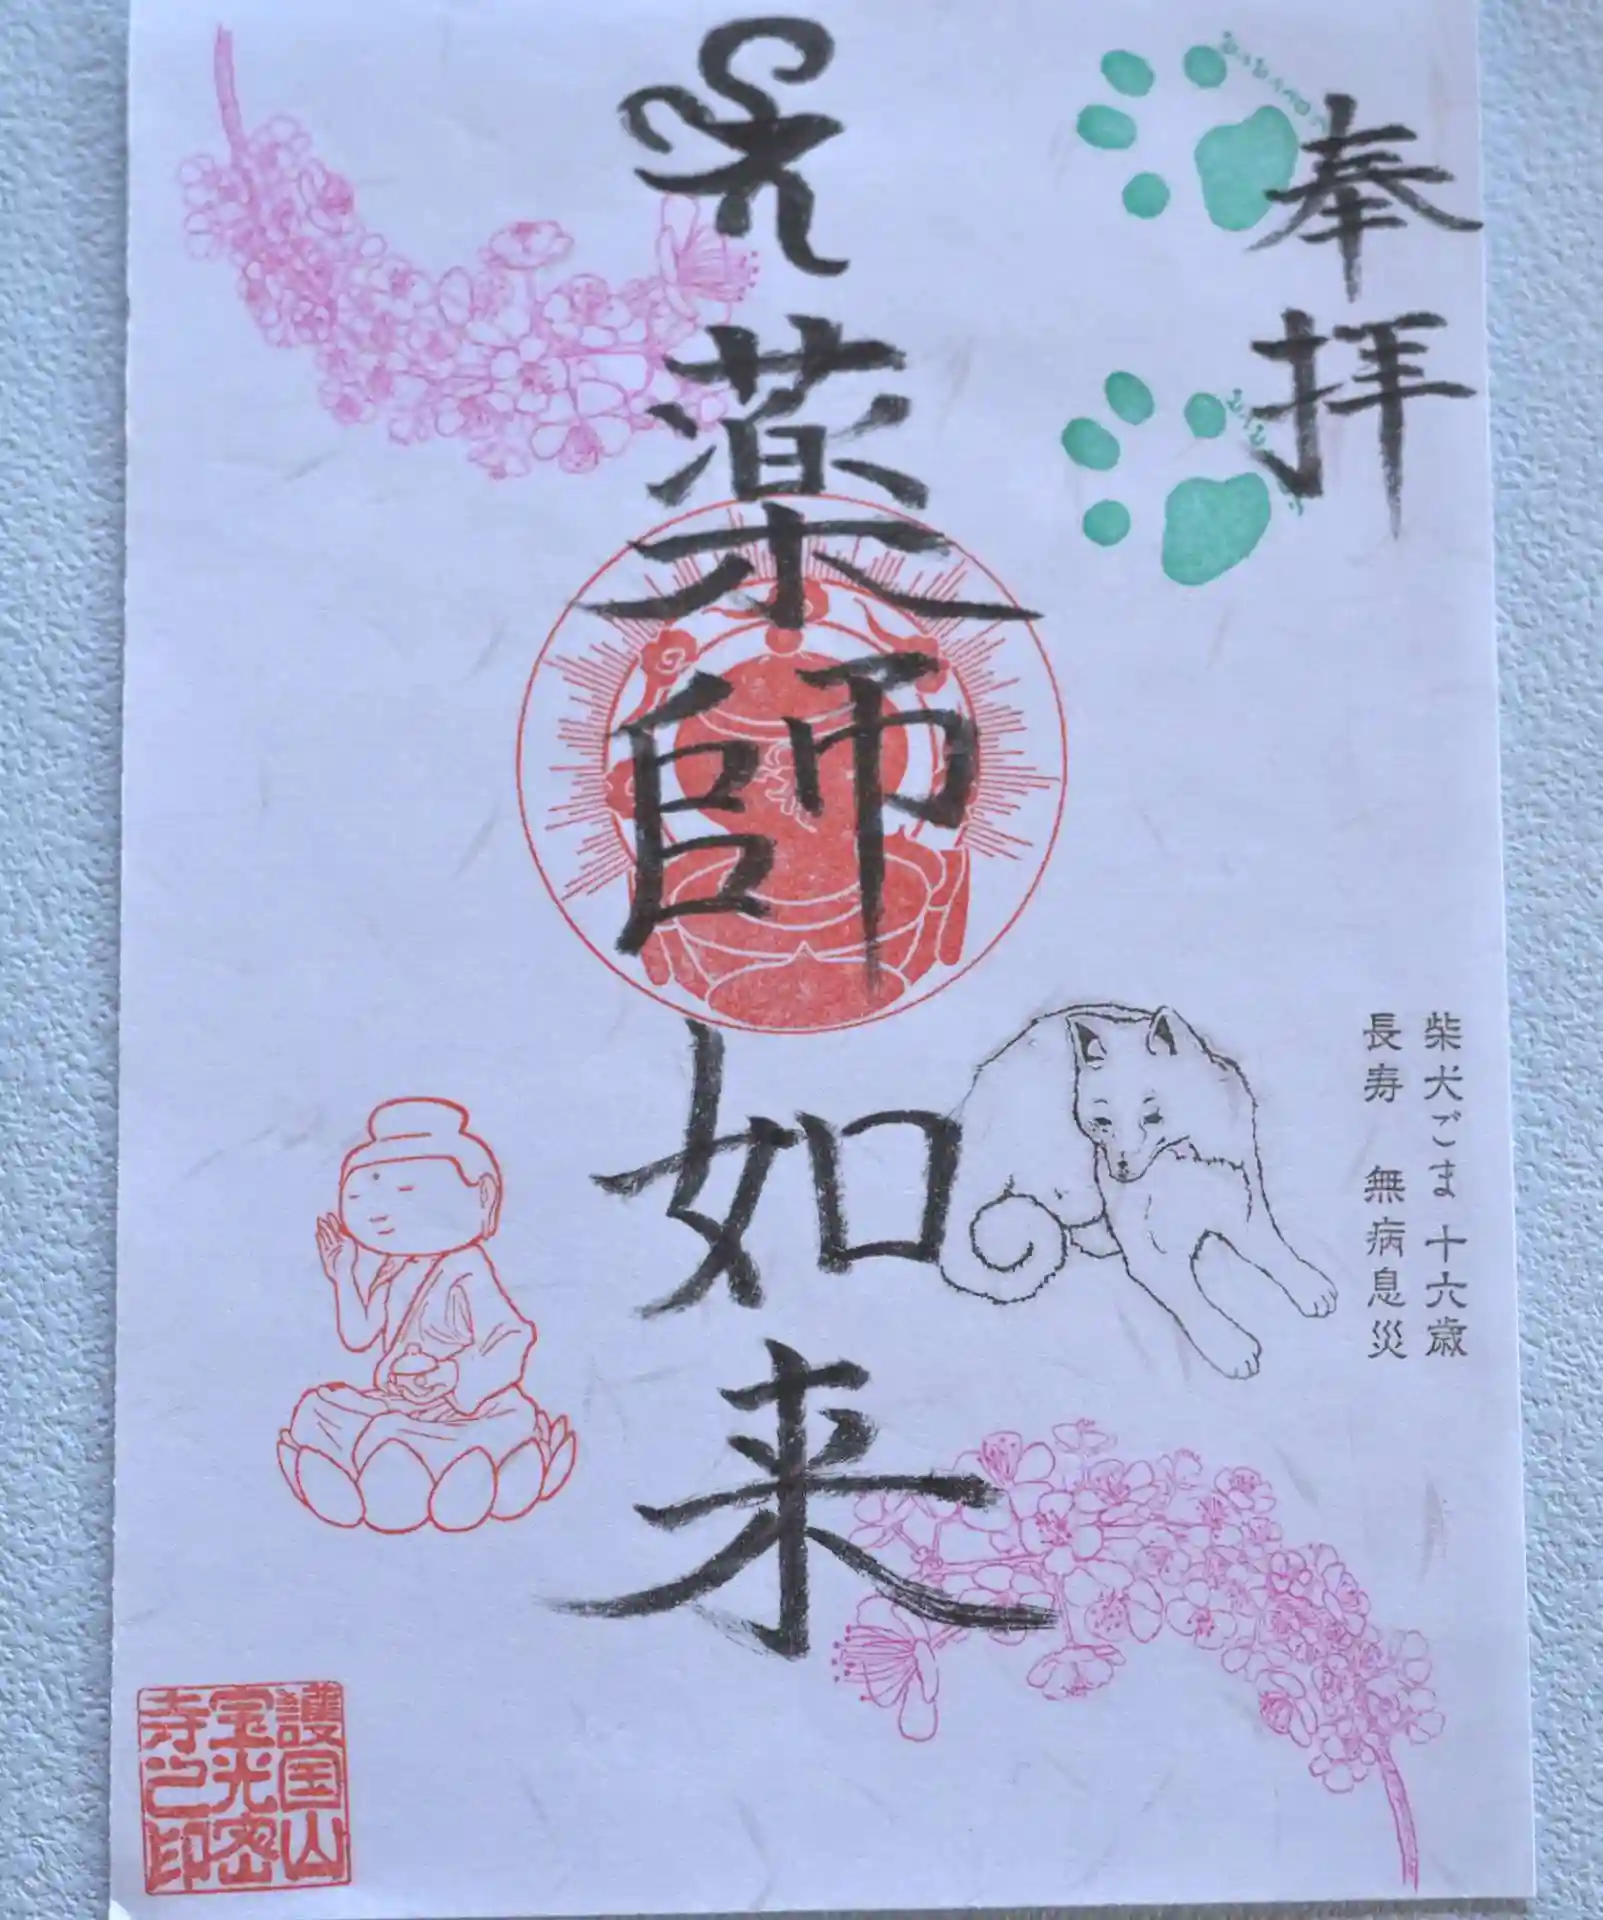 奉拝
薬師如来
柴犬ごま 十六歳
長寿 無病息災
護国山
宝光密
寺之印